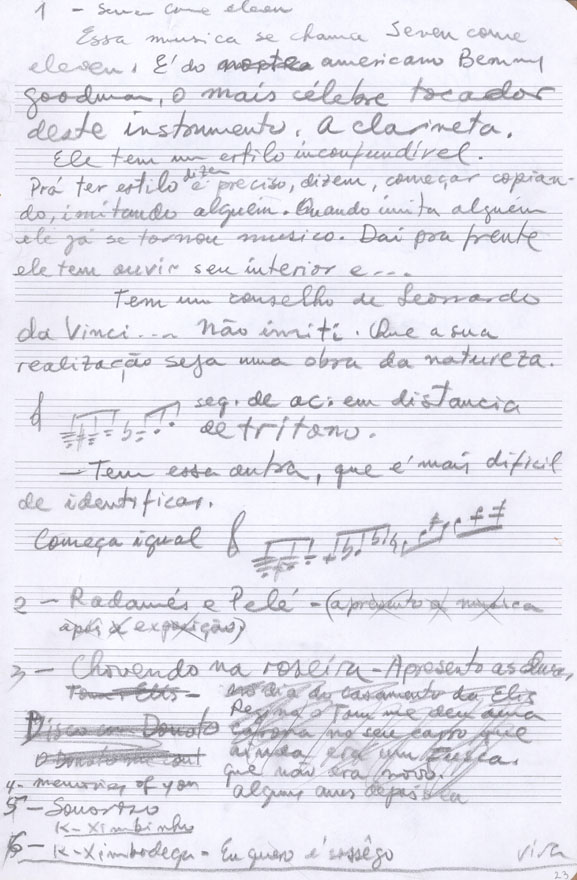 1 - Seven come eleven
Essa musica se chama Seven come
eleven. É do americano Benny
goodman, o mais célebre tocador
deste instrumento. A clarineta.
Ele tem um estilo inconfundível.
dizem
Prá ter estilo é preciso, dizem, começar copian-
do, imitando alguém. Quando imita alguém
ele já se tornou musico. Daí pra frente
ele tem ouvir seu interior e...
Tem um conselho de Leonardo
da Vinci... Não imiti. Que a sua
realização seja uma obra da natureza.
seq. de ac. em distancia
de trítono.
- Tem essa outra, que é mais dificil
de identificar.
Começa igual
2 - Radamés e Pelé - (apresento a musica
após a exposição)
3 - Chovendo na roseira - Apresento as duas,
Tom e Elis - no dia do casamento da Elis
Regina o Tom me deu uma
Disco com Donato carona no seu carro que
ainda era um Fusca.
O Donato me
que não era novo.
4 - memories of you alguns anos depois
5 - Sonoroso
K-Ximbinho
6 - K-Ximbodega - Eu quero é sossêgo
vira
23